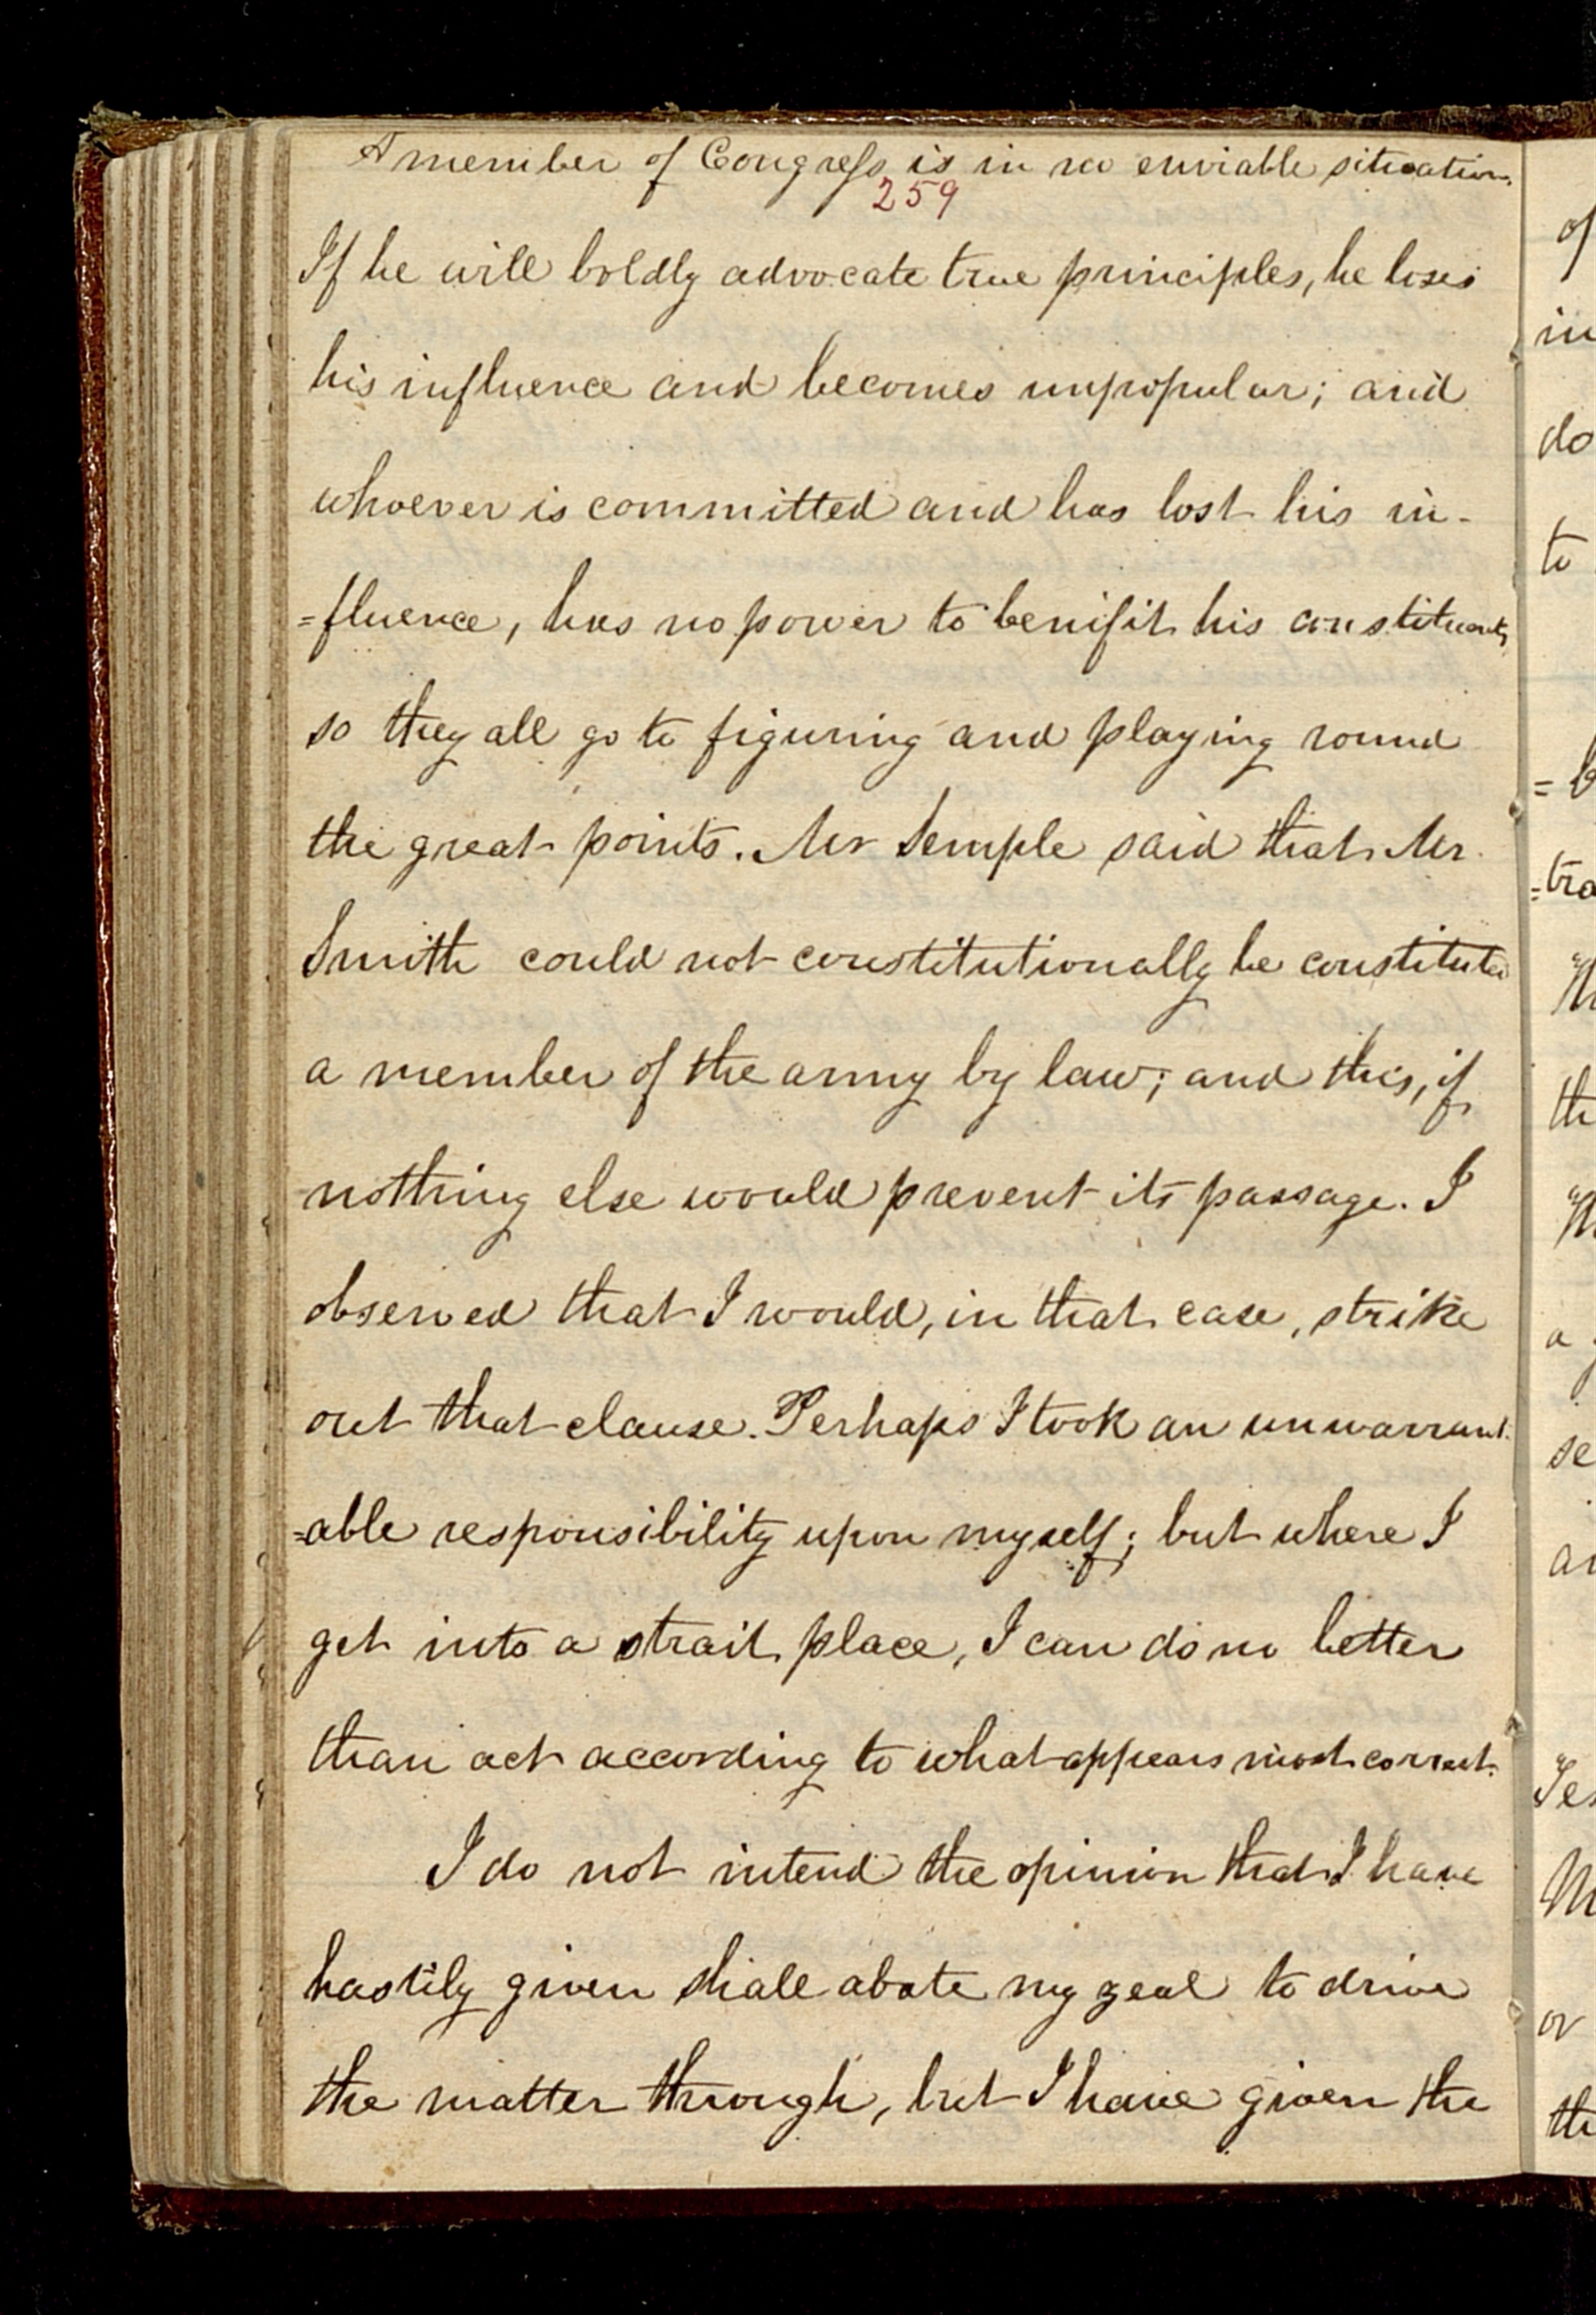 A member of Congress is in no enviable situation.
259
If he will boldly advocate true principles, he loses
his influence and becomes unpopular; and
whoever is committed and has lost his in-
=fluence, has no power to benifit his constituents,
so they all go to figuring and playing round
the great points. Mr Semple said that Mr.
Smith could not constitutionally be constituted
a member of the army by law; and this, if
nothing else would prevent its passage. I
observed that I would, in that case, strike
out that clause. Perhaps I took an unwarrant-
=able responsibility upon myself; but where I
get into a strait place, I can do no better
than act according to what appears most correct.
I do not intend the opinion that I have
hastily given shall abate my zeal to drive
the matter through, but I have given the
of
in
do
to
= b
=tra
th
a
se
or
th